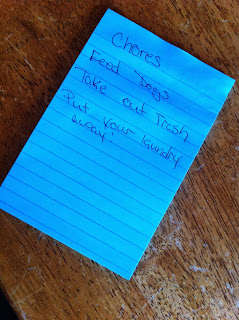 Chores
Feed Dogs
Take out Trash
Put your laundry
away!